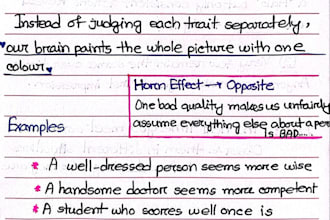 Instead of judging each trait separately,
our brain paints the whole picture with one
colour.
Horn Effect → Opposite
One bad quality makes us unfairly
assume everything else about a per
is BAD....
Examples
* A well-dressed person seems more wise
* A handsome doctor seems more competent
* A student who scores well once is